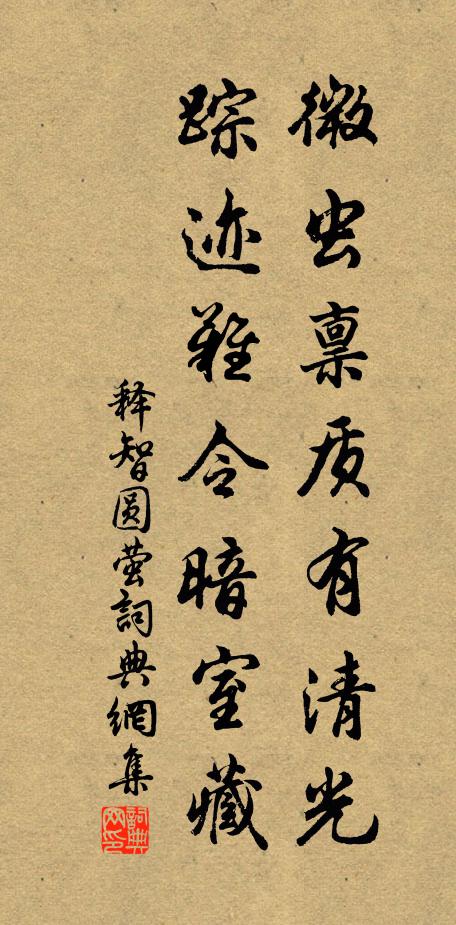 微虫禀质有清光
踪迹难令暗室藏
释智圆萤詞典網集
詞典网印